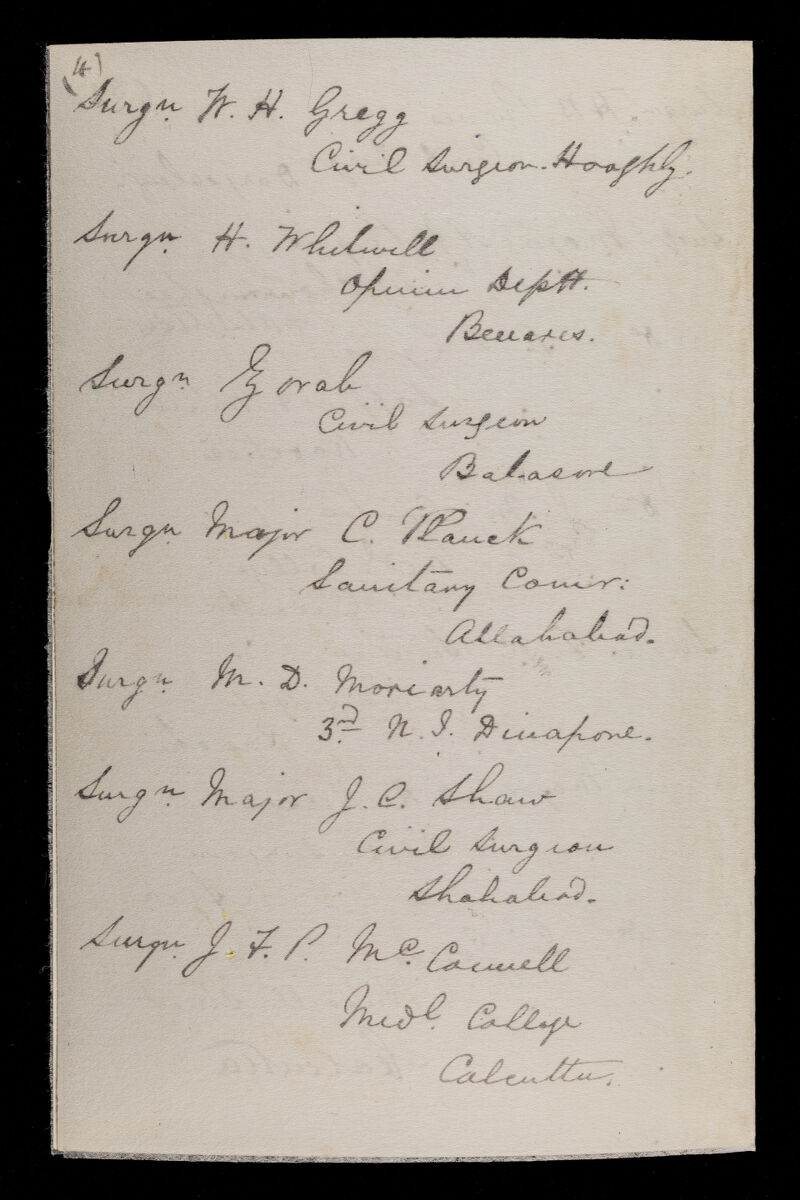 (4)
Surgn. W. H. Gregg
Civil Surgeon. Hooghly.
Surgn H. Whitwell
Opium Deptt.
Benares.
Surgn Zorab
Civil Surgeon
Balasore
Surgn. Major C. Planck
Sanitary Comr:
Allahabad.
Surgn. M. D. Moriarty
3rd N. I. Dinapore.
Surgn Major J. C. Shaw
Civil Surgeon
Shahabad.
Surgn. J. F. P. Mc. Connell
Medl. College
Calcutta.